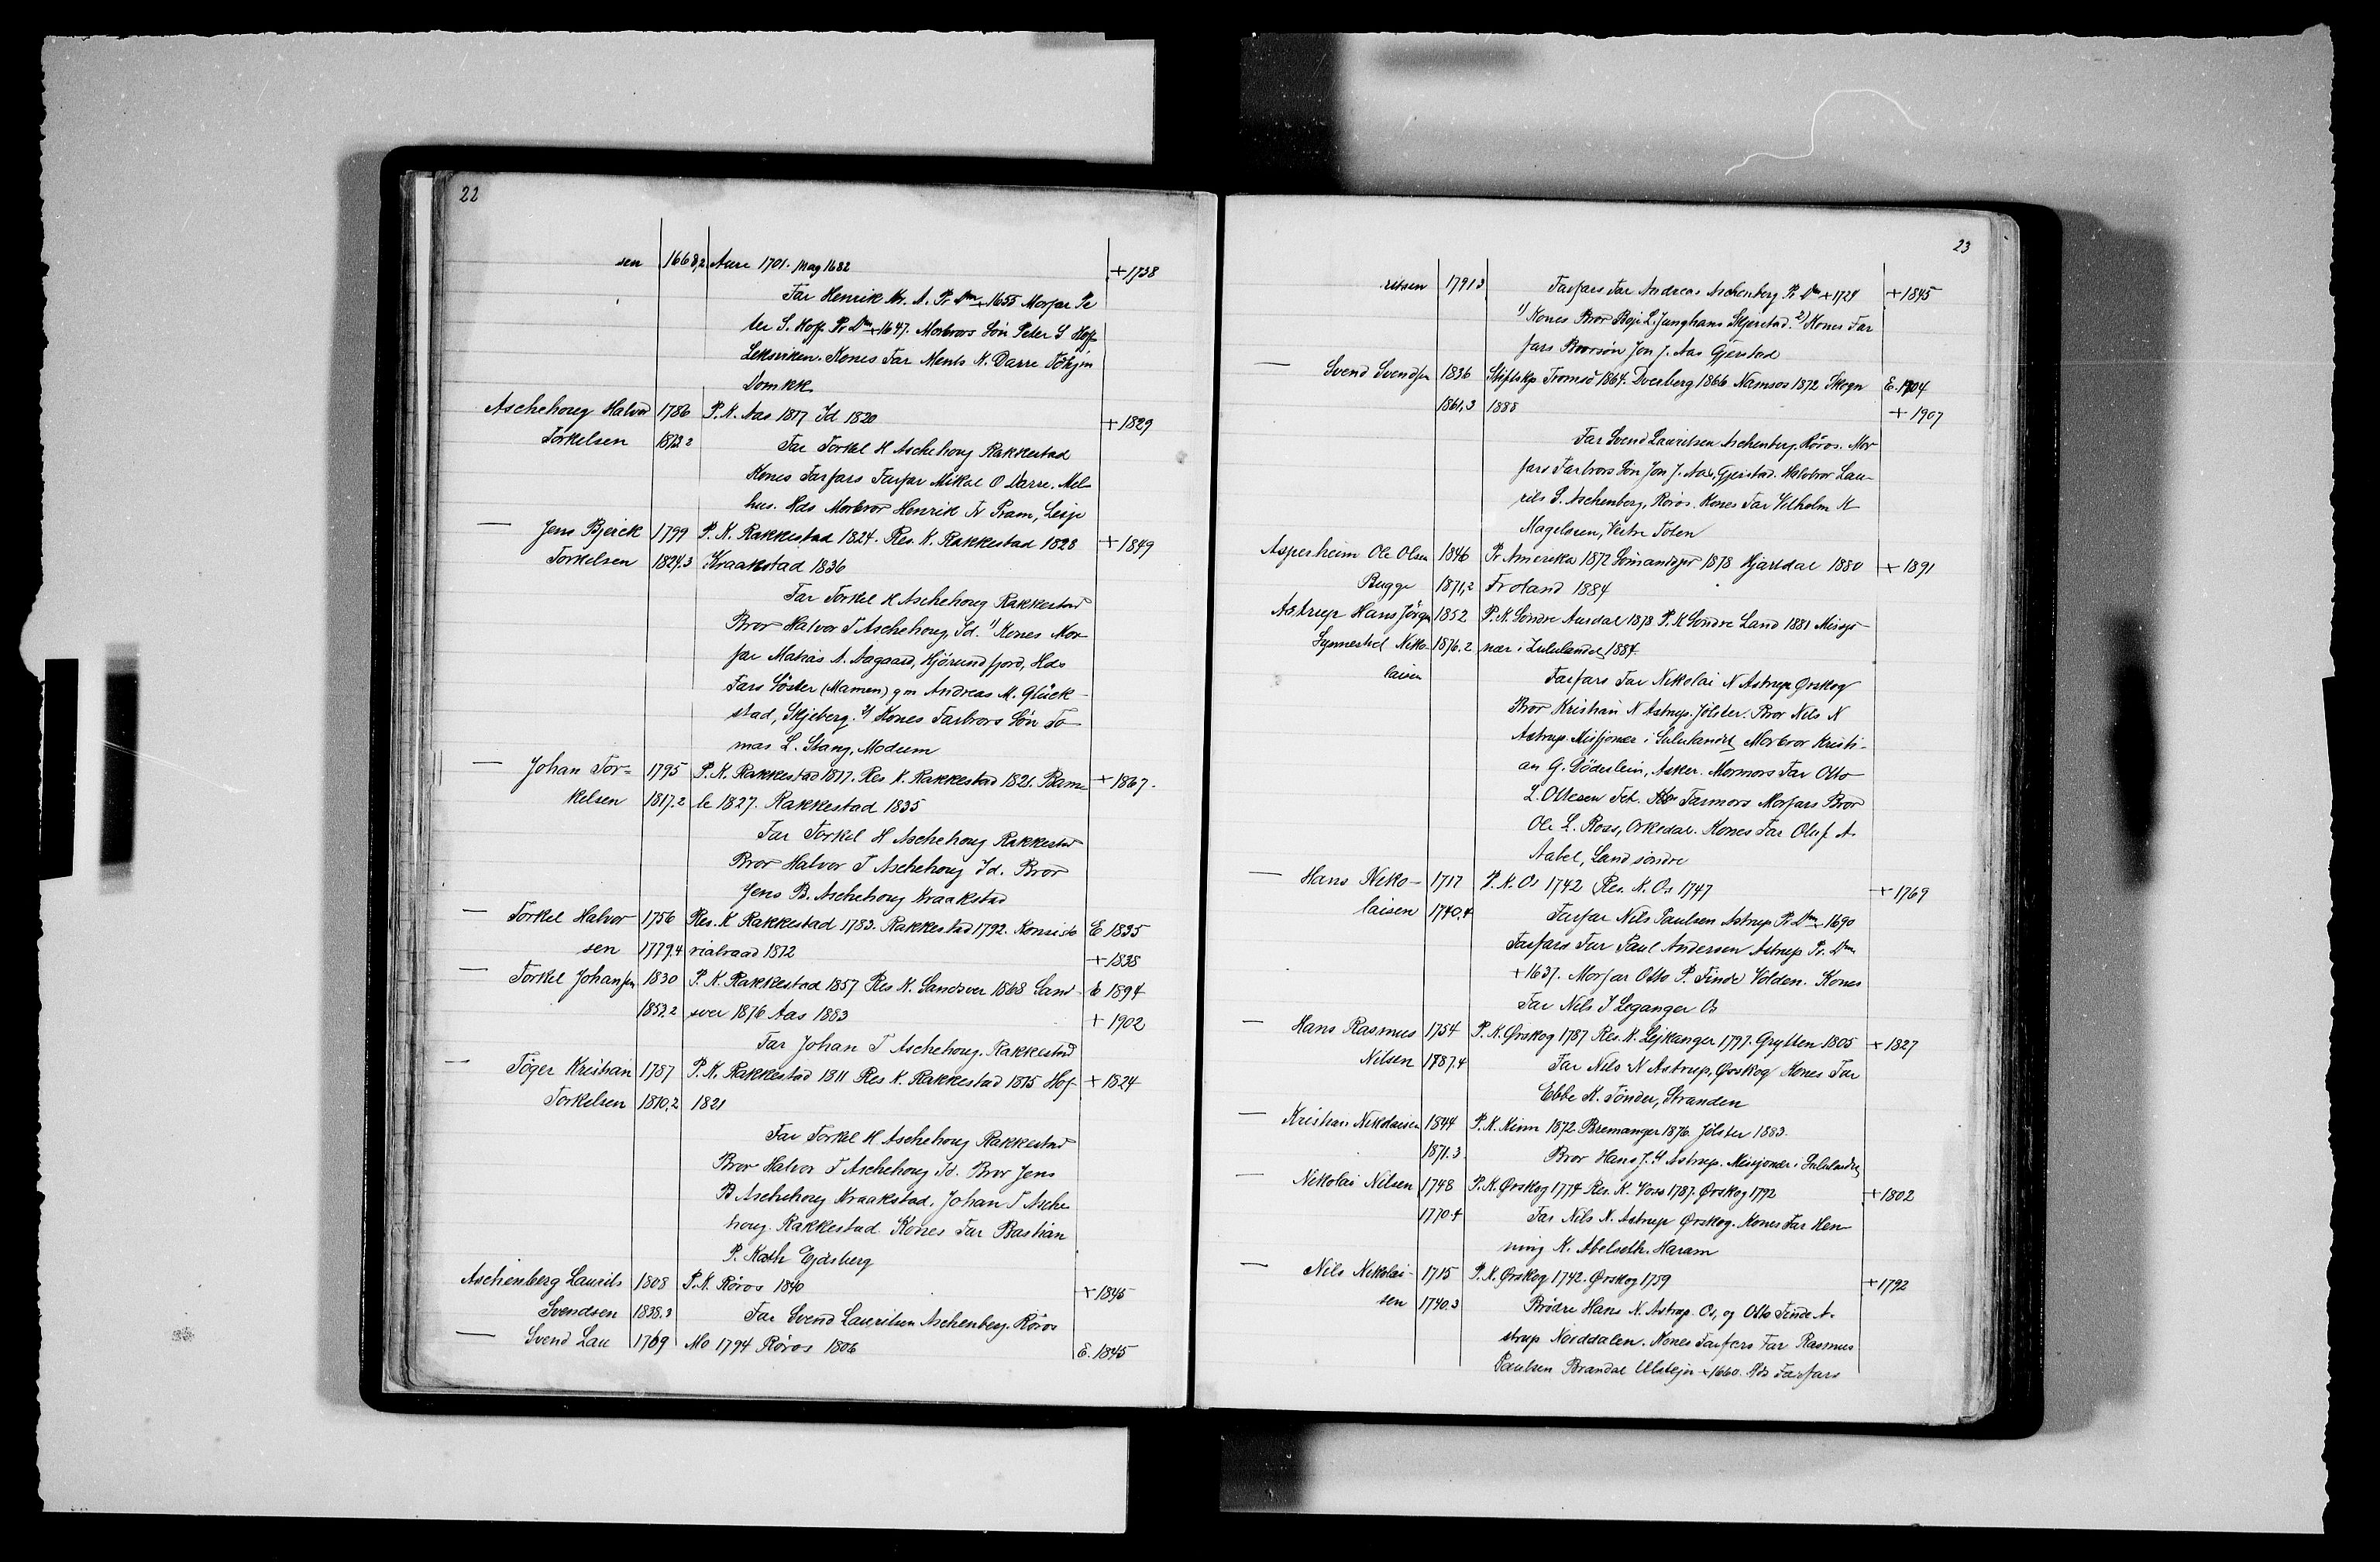 22
sen 1668,2 Aure 1701. Mag 1682 +1738
Far Henrik Kr. A. Pr. Dm +1655 Morfar Pe
ter S. Hoff. Pr Dm +1647. Morbrors Sön Peter S Hoff
Leksviken. Kones Far Ments K. Darre Tðhjm
Domkk.
Aschehoug Halvor 1786 P. K. Aas 1817 Id 1820 +1829
Torkelsen 1812.2 Far Torkel H Aschehoug Rakkestad
Kones Farfars Farfar Mikal O Darre. Mel-
hus. Hds Morbror Henrik Fr Pram, Lesje
— Jens Bjerck 1799 P. K. Rakkestad 1824. Res. K. Rakkestad 1828 +1849
Torkelsen 1824.3 Kraakstad 1836
Far Torkel H Aschehoug Rakkestad
Bror Halvor T Aschehoug, Id. 1) Kones Mor-
far Matias A. Aagaard, Hjörundfjord, Hds
Fars Söster (Mamen) gm Andreas M. Glück-
stad, Skjeberg. 2) Kones Farbrors Sön To-
mas L. Stang, Modum
— Johan Tor= 1795 P. K. Rakkestad 1817. Res K. Rakkestad 1821. Bam +1867.
kelsen 1817.2 le 1827. Rakkestad 1835
Far Torkel H Aschehoug Rakkestad
Bror Halvor T Aschehoug Id. Bror
Jens B. Aschehoug Kraakstad
— Torkel Halvor 1756 Res. K Rakkestad 1783. Rakkestad 1792. Konsisto E 1835
sen 1779.4 rialraad 1812 +1838
— Torkel Johansen 1830 P. K. Rakkestad 1857 Res K. Sandsver 1868 Sand- E 1894
1852.2 sver 1876 Aas 1883 + 1902
Far Johan T Aschehoug. Rakkestad
— Töger Kristian 1787 P. K. Rakkestad 1811 Res K. Rakkestad 1815 Hof +1824
Torkelsen 1810,2 1821
Far Torkel H Aschehoug Rakkestad
Bror Halvor T Aschehoug Id. Bror Jens
B Aschehoug Kraakstad, Johan T Asche
houg. Rakkestad Kones Far Bastian
P. Kath Ejdsberg
Aschenberg Laurits 1808 P. K. Röros 1840 +1846
Svendsen 1838.3 Far Svend Lauritsen Aschenberg. Röros
— Svend Lau 1769 Mo 1794 Röros 1806 E. 1845
23
ritsen 1791 3 Farfars Far Andreas Aschenberg Pr Dm +1724 +1845
1) Kones Bror Boje L. Junghans Skjerstad. 2) Kones Far
fars Brorsön Jon J. Aas Gjerstad
— Svend Svendsen 1836 Stiftskp. Tromsö 1864. Dverberg 1866. Namsos 1872 Skogn E. 1904
1861,3 1888 + 1907
Far Svend Lauritsen Aschenberg, Röros. Mor
fars Farbrors Sön Jon J. Aas, Gjerstad. Halvbror Lau-
rits S. Aschenberg, Röros. Kones Far Vilhelm K
Magelssen, Vestre Toten
Asperheim Ole Olsen 1846 Pr Amerika 1872 Sömandspr 1878 Hjartdal 1880 +1891
Bugge 1871,2 Froland 1884
Astrup Hans Jörgen 1852 P. K. Söndre Aurdal 1878 P. K Söndre Land 1881 Missjo-
Synnestvd Niko- 1876.2 nær i Zululandet 1884.
laisen Farfars Far Nikolai N Astrup Ørskog
Bror Kristian N Astrup. Jölster. Bror Nils N
Astrup. Missjonær i Zululandet Morbror Kristi-
an G. Döderlein, Asker. Mormors Far Otto
L. Ottesen Fet. Farmors Morfars Bror
Ole L. Ross, Orkedal. Kones Far Oluf A.
Aabel, Land söndre
— Hans Niko- 1717 P. K. Os 1742 Res. K. Os 1747 +1769
laisen 1740.4 Farfar Nils Paulsen Astrup Pr. Dm +1690
Farfars Far Paul Andersen Astrup Pr. Dm
+1637. Morfar Otto P. Finde Volden. Kones
Far Nils I Leganger Os
— Hans Rasmus 1754 P. K. Ørskog 1787. Res. K. Lejkanger 1797. Grytten 1805 +1827
Nilsen 1787.4 Far Nils N Astrup, Ørskog Kones Far
Ebbe K. Tönder, Stranden
— Kristian Nikolaisen 1844 P. K. Kinn 1872. Bremanger 1876. Jölster 1883.
1871.3 Bror Hans J. S Astrup. Missjonær i Zululandet
— Nikolai Nilsen 1748 P. K. Ørskog 1774 Res. K. Voss 1787. Ørskog 1792 +1802
1770.4 Far Nils N. Astrup Ørskog. Kones Far Hen-
ning K. Abelseth. Haram
— Nils Nikolai- 1715 P. K. Ørskog 1742. Ørskog 1759 +1792
sen 1740.3 Brödre Hans N. Astrup. Os, og Otto Finde A-
strup Norddalen. Kones Farfars Far Rasmus
Paulsen Brandal Ulstejn +1660. Hds Farfars